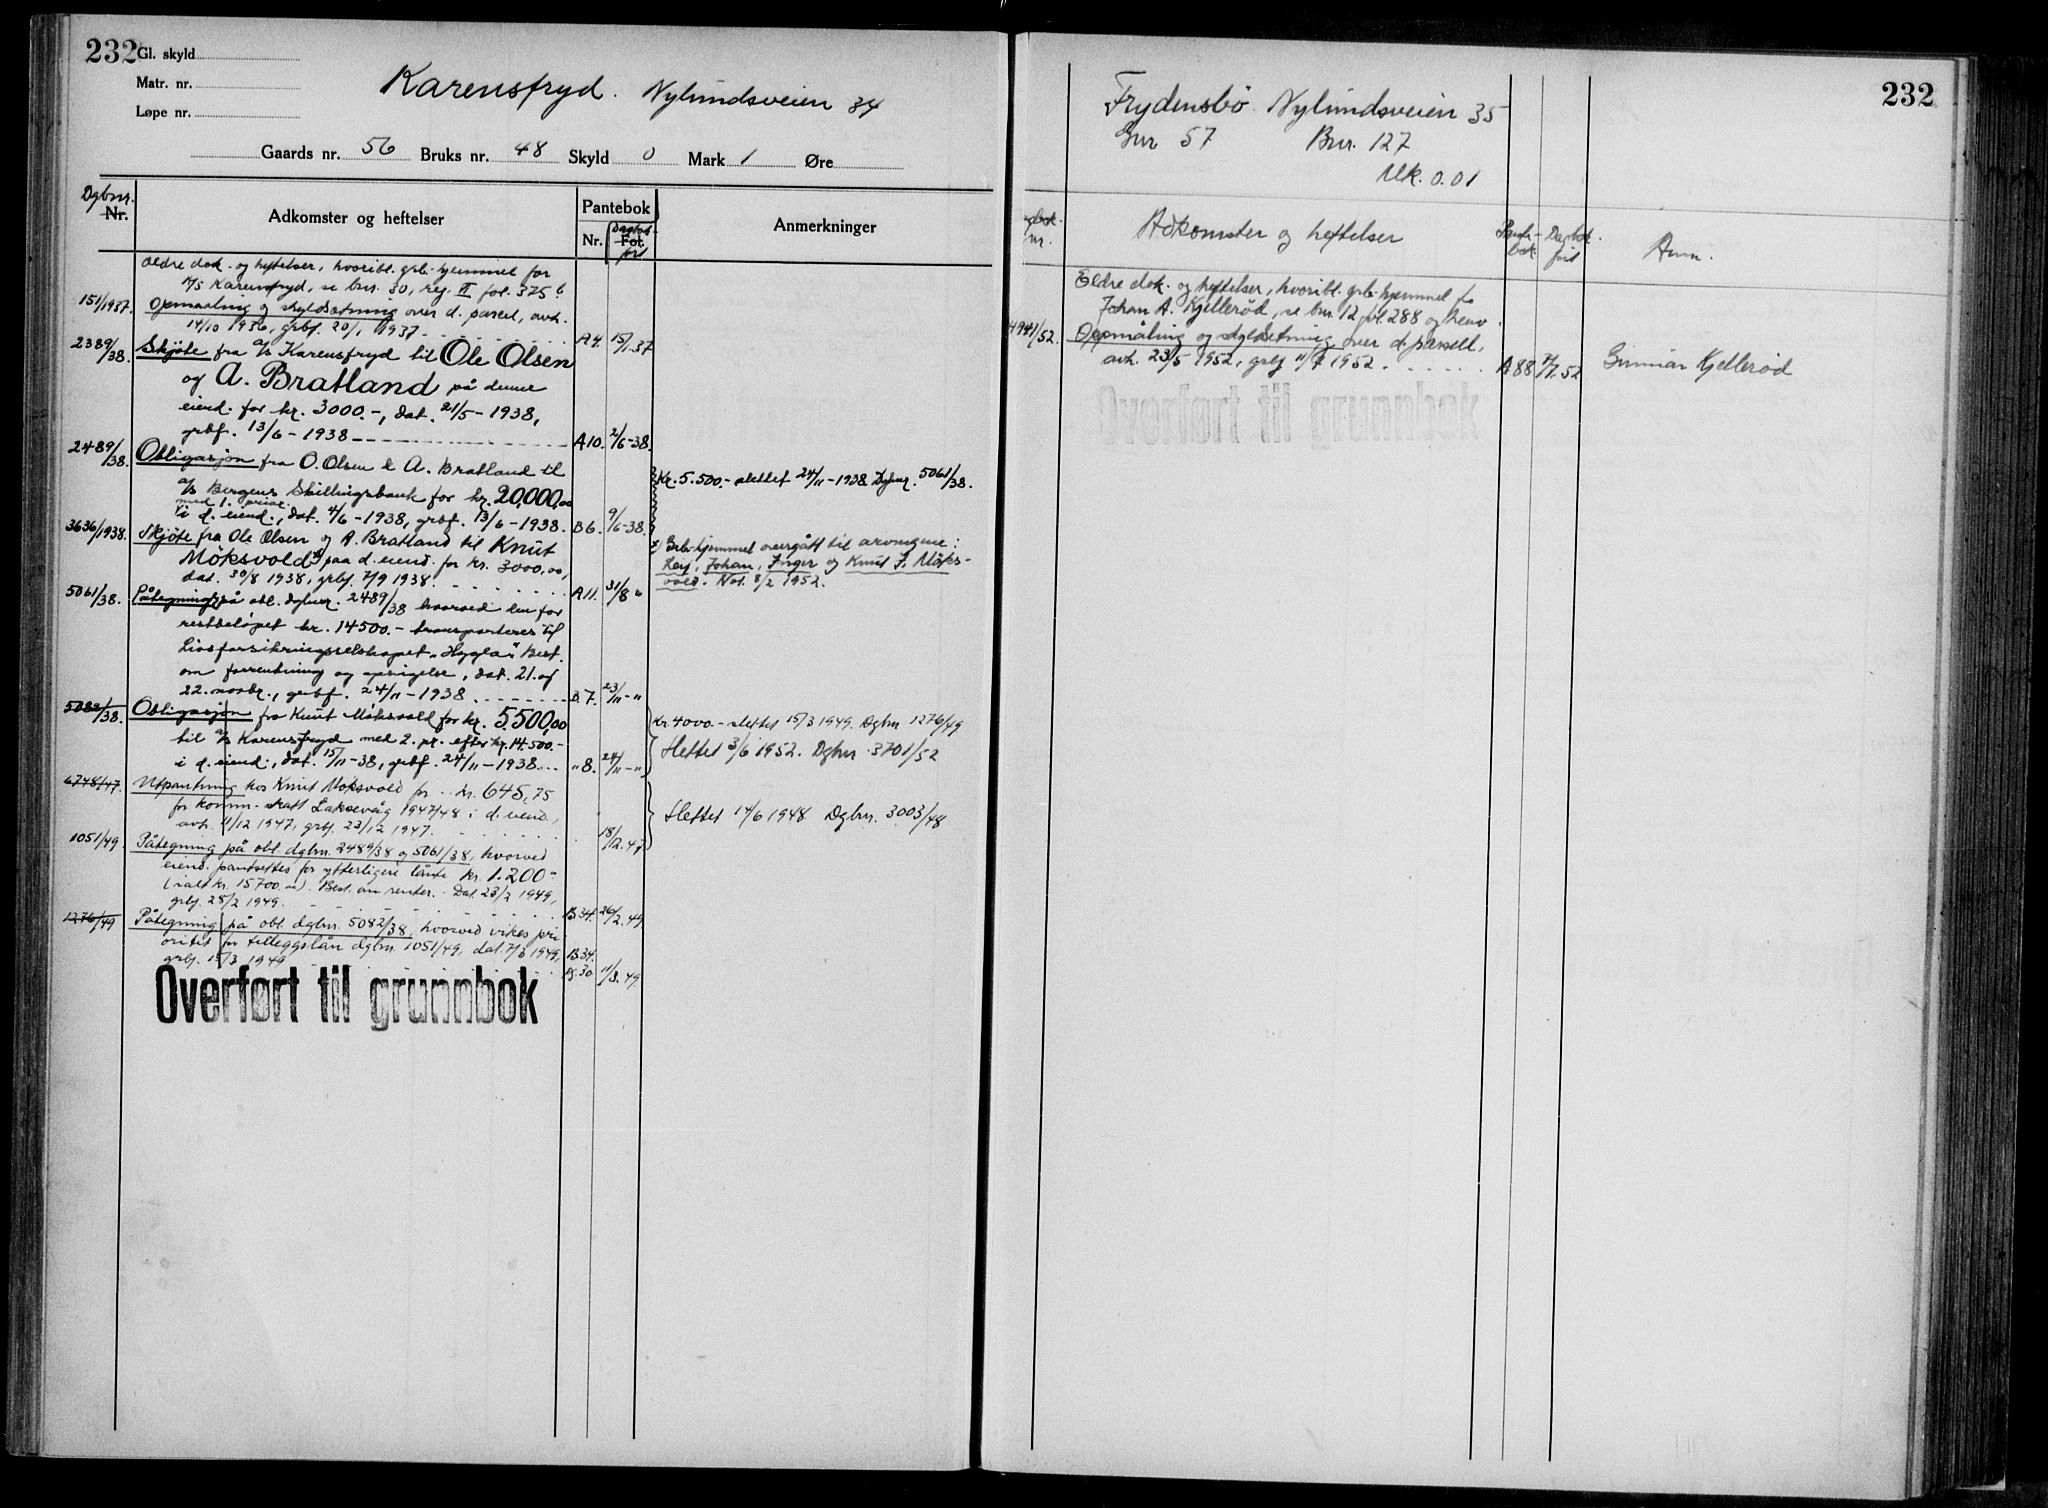 232 Gl. skyld
Matr. nr.
Løpe nr.
Karensfryd. Nylundsveien 34
Gaards nr. 56 Bruks nr. 48 Skyld 0 Mark 1 Øre
Dgbnr.
Nr. Adkomster og heftelser Pantebok Anmerkninger
Nr. Fol. Dagbok ført
Eldre dok. og heftelser, hvoribl. grb. hjemmel for
A/S Karensfryd, se bnr. 30, reg. II fol. 375 b
151/1937. Opmaaling og skyldsætning over d. parcel, avh.
14/10 1936, grbf. 20/1 1937 A4. 15/1.37
2389/38. Skjöte fra a/s Karensfryd til Ole Olsen
og A. Bratland på denne
eiend. for kr. 3000.-, dat. 21/5-1938,
grbf. 13/6-1938 A10. 2/6-38.
2489/38. Obligasjon fra O. Olsen & A. Bratland til
a/s Bergens Skillingsbank for kr. 20,000,00
med 1. prior.
i d. eiend., dat. 4/6-1938, grbf. 13/6-1938. B6. 9/6-38.
Kr. 5.500.- slettet 24/11-1938 Dgbnr. 5061/38.
3636/1938. Skjöte fra Ole Olsen og A. Bratland til Knut
Möksvold x) paa d. eiend. for kr. 3000,00,
dat. 30/8 1938, grbf. 7/9 1938. A11. 31/8 "
x) Grb. hjemmel overgått til arvingene:
Leif, Johan, Inger og Knut F. Möks-
vold. Not. 8/2 1952.
5061/38. Påtegning på obl. dgbnr. 2489/38 hvorved den for
restbelöpet kr. 14500.- transporteres til
Livsforsikringsselskapet "Hygea". Best.
om forrentning og opsigelse, dat. 21. og
22. novbr., grbf. 24/11-1938 B.7. 23/11-"
5082/38. Obligasjon fra Knut Möksvold for kr. 5500,00
til a/s Karensfryd med 2. pr. efter kr. 14.500.-
i d. eiend., dat. 15/11-38, grbf. 24/11-1938 "8. 24/11-"
Kr 4000.- slettet 15/3 1949. Dgbnr 1276/49
Slettet 3/6 1952. Dgbnr 3701/52
6748/47. Utpantning hos Knut Möksvold for kr. 645,75
for komm. skatt Laksevåg 1947/48 i d. eiend.,
avh. 11/12 1947, grbf. 23/12 1947. 18/12.47
Slettet 14/6 1948 Dgbnr. 3003/48
1051/49. Påtegning på obl. dgbnr. 2489/38 og 5061/38, hvorved
eiend. pantsettes for ytterligere lånte kr. 1.200.-
(ialt kr. 15700.00). Best. om renter. Dat. 23/2 1949,
grbf. 28/2 1949. B34. 26/2.49
1276/49 Påtegning på obl. dgbnr. 5082/38, hvorved vikes pri-
oritet for tilleggslån dgbnr. 1051/49, dat. 7/3 1949, B34.
grbf. 15/3 1949 B.30 11/3.49
Overført til grunnbok
232
Frydensbö. Nylundsveien 35
Gnr 57 Bnr. 127
Mk. 0.01
nr. Adkomster og heftelser Pante-bok Dagbok ført Anm.
Eldre dok. og heftelser, hvoribl. grb. hjemmel for
Johan A. Kjelleröd, se bnr. 12 fol. 288 og henv.
4941/52. Oppmåling og skyldsetning over d. parsell,
avh. 23/5 1952, grbf 11/7 1952. A88 7/7.52 Gunnar Kjelleröd
Overført til grunnbok